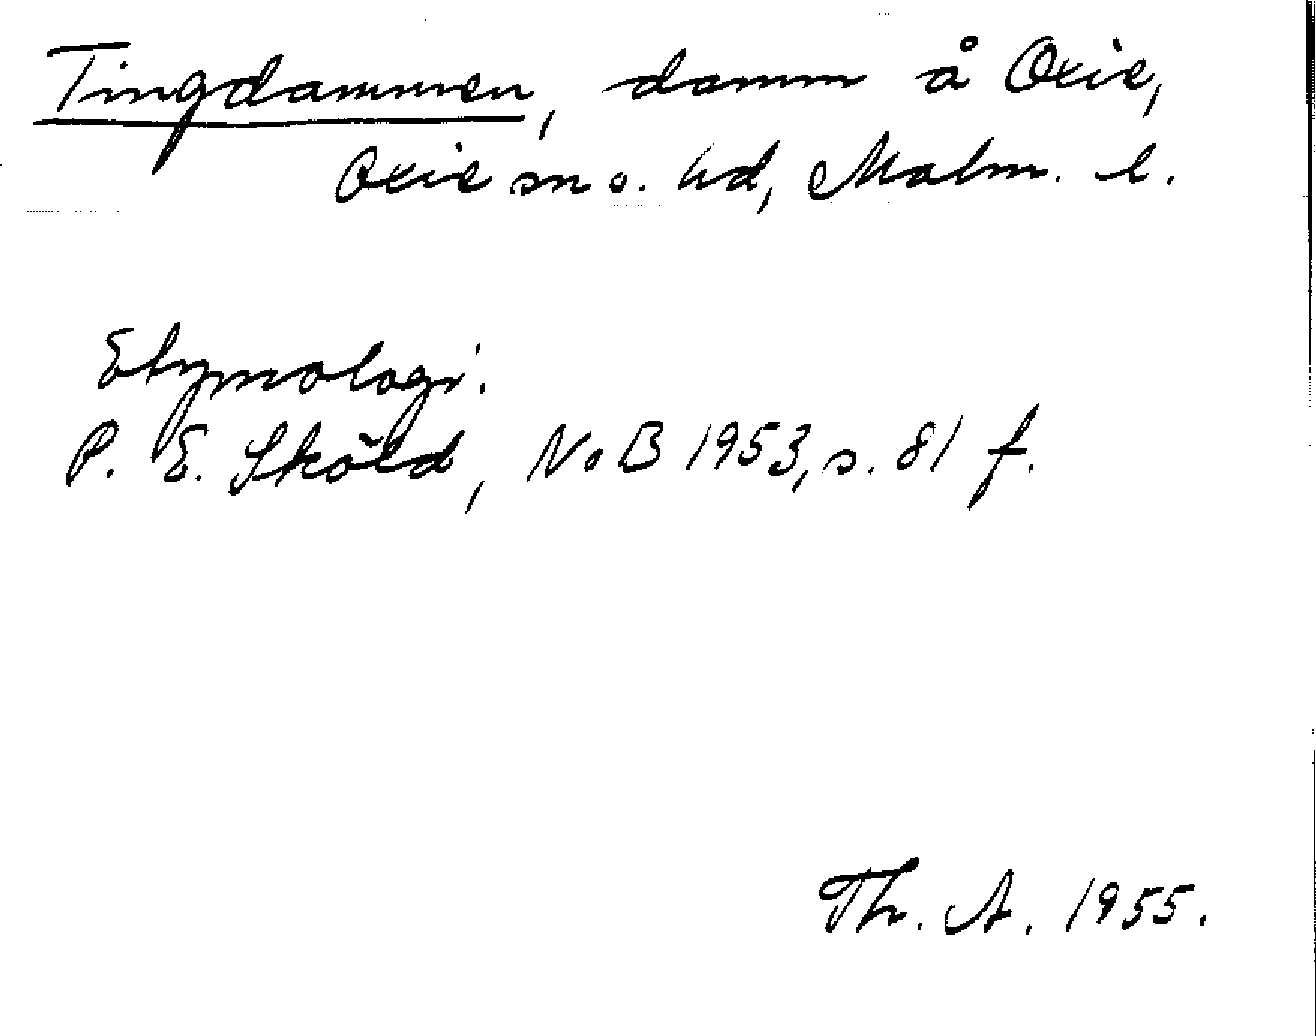 Tingdammen, damm å Oxie,
Oxie sn o. hd, Malm. l.
Etymologi.
P. E. Sköld, NoB 1953, s. 81 f.
Th. A. 1955.